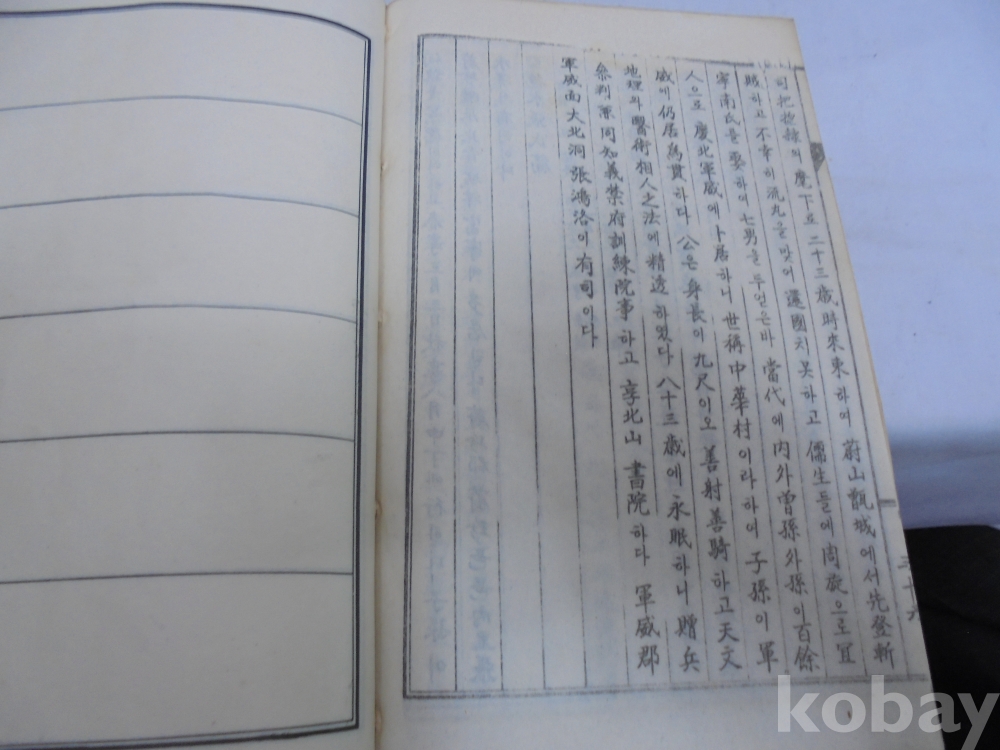 司把摠隷의 麾下로 二十三歲時來東하여 蔚山甑城에서先登斬
賊하고 不幸히流丸을맞어 還國치못하고 儒生들에周旋으로宜
寧南氏를娶하여 七男을두었은바 當代에內外曾孫外孫이百餘
人으로 慶北軍威에卜居하니 世稱中華村이라하여 子孫이軍
威에仍居爲貫하다 公은身長이九尺이오 善射善騎하고天文
地理와醫術相人之法에精透하였다 八十三歲에永眠하니 贈兵
參判兼同知義禁府訓練院事하고 享北山書院하다 軍威郡
軍威面大北洞張鴻洛이有司이다
三十六
kobay